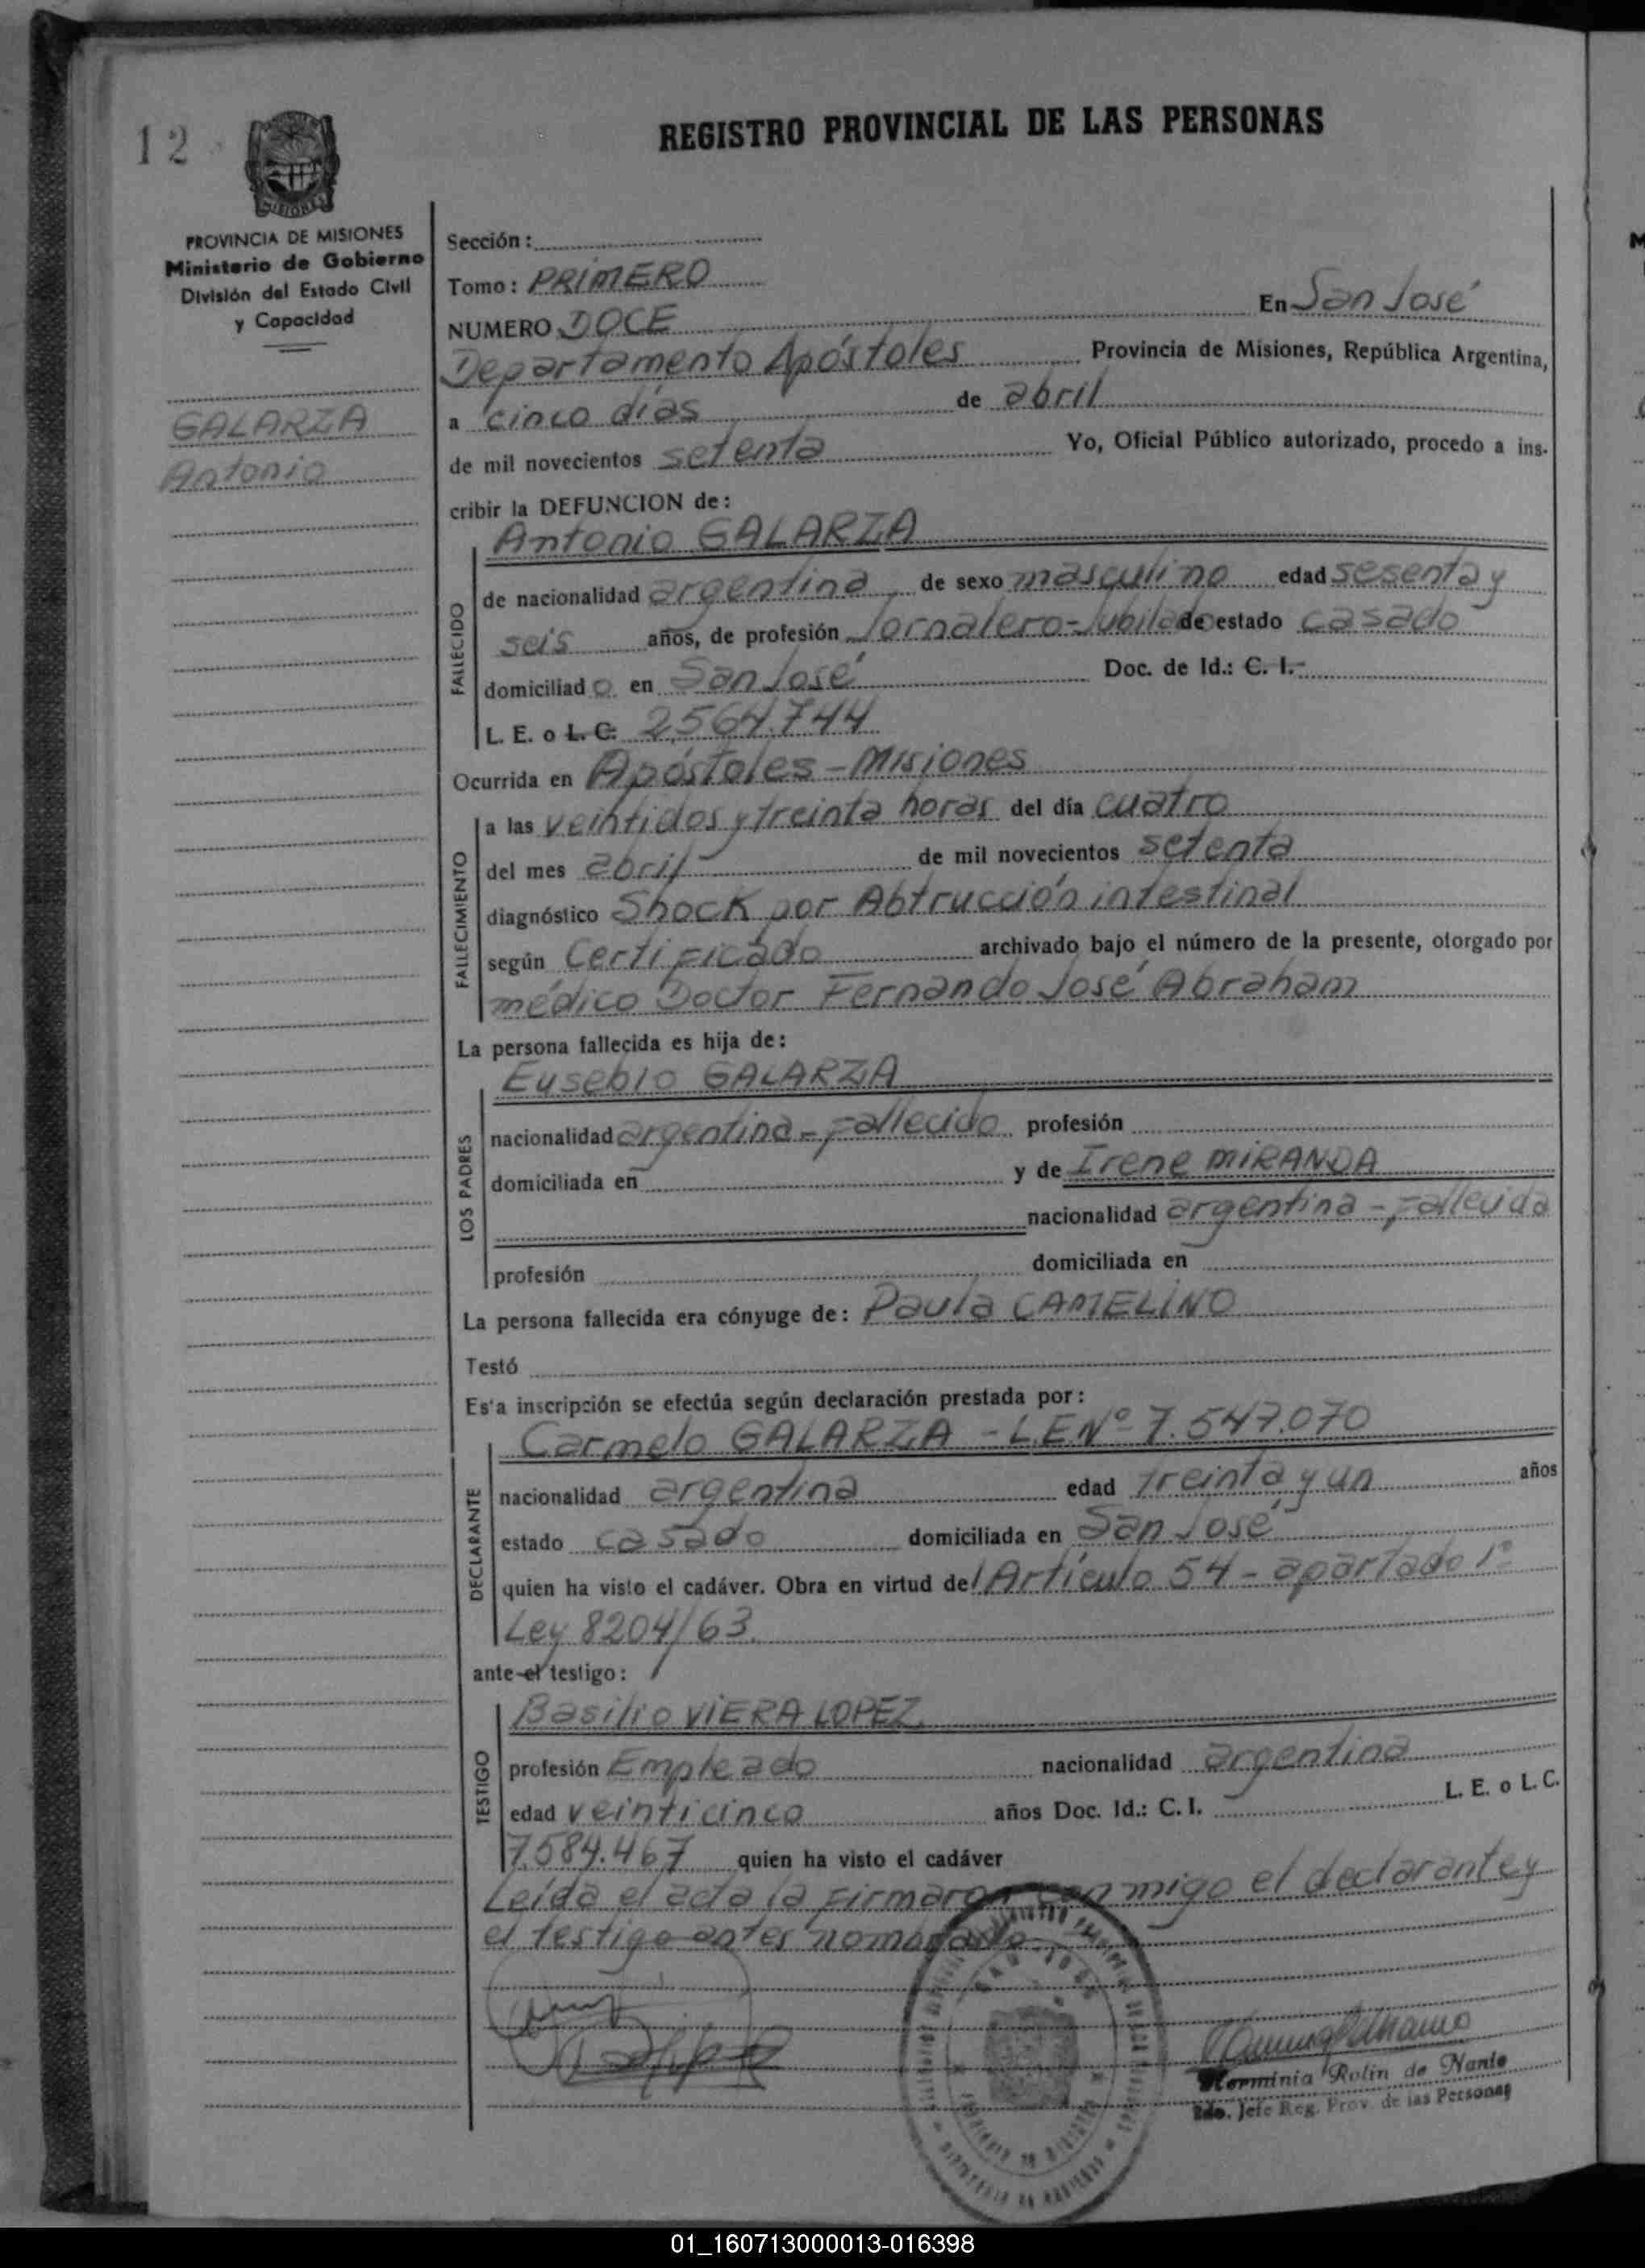 12
REGISTRO PROVINCIAL DE LAS PERSONAS
MISIONES
PROVINCIA DE MISIONES
Ministerio de Gobierno
División del Estado Civil
y Capacidad
GALARZA
Antonio
Sección:
Tomo: PRIMERO
NUMERO DOCE En San José
Departamento Apóstoles Provincia de Misiones, República Argentina,
a cinco días de abril
de mil novecientos setenta Yo, Oficial Público autorizado, procedo a ins-
cribir la DEFUNCION de:
Antonio GALARZA
FALLECIDO
de nacionalidad argentina de sexo masculino edad sesenta y
seis años, de profesión Jornalero-Jubilado de estado casado
domiciliado en San José Doc. de Id.: C. I.-
L. E. o L. C. 2.564.744
Ocurrida en Apóstoles - Misiones
FALLECIMIENTO
a las veintidos y treinta horas del día cuatro
del mes abril de mil novecientos setenta
diagnóstico Shock por Abtrucción intestinal
según Certificado archivado bajo el número de la presente, otorgado por
médico Doctor Fernando José Abraham
La persona fallecida es hija de:
Eusebio GALARZA
LOS PADRES
nacionalidad argentina - fallecido profesión
domiciliada en y de Irene MIRANDA
nacionalidad argentina - fallecida
profesión domiciliada en
La persona fallecida era cónyuge de: Paula CAMELINO
Testó
Es'a inscripción se efectúa según declaración prestada por:
Carmelo GALARZA - L.E Nº 7.547.070
DECLARANTE
nacionalidad argentina edad treinta y un años
estado casado domiciliada en San José
quien ha visto el cadáver. Obra en virtud del Artículo 54 - apartado 1º
Ley 8204/63.
ante el testigo:
Basilio VIERA LOPEZ
TESTIGO
profesión Empleado nacionalidad argentina
edad veinticinco años Doc. Id.: C. I. L. E. o L. C.
7.584.467 quien ha visto el cadáver
Leída el acta la firmaron conmigo el declarante y
el testigo antes nombrado.
Herminia Rolin de Nanio
2do. Jefe Reg. Prov. de las Personas
01_160713000013-016398